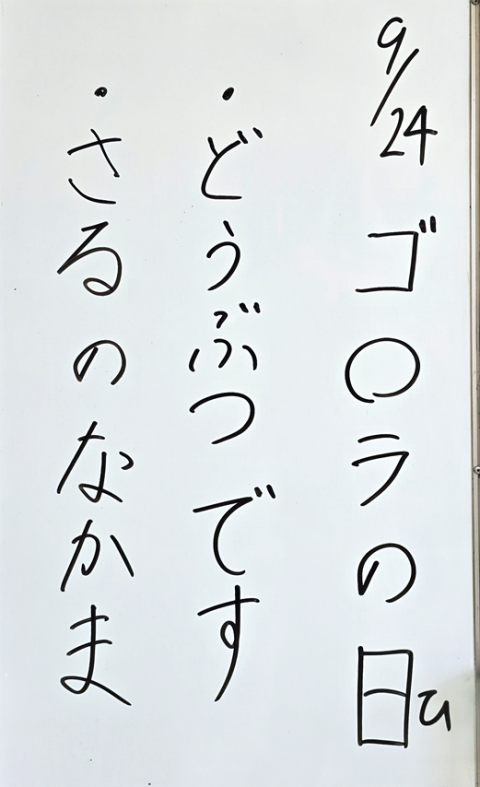 9/24 ゴ〇ラの日 ひ
・どうぶつです
・さるのなかま